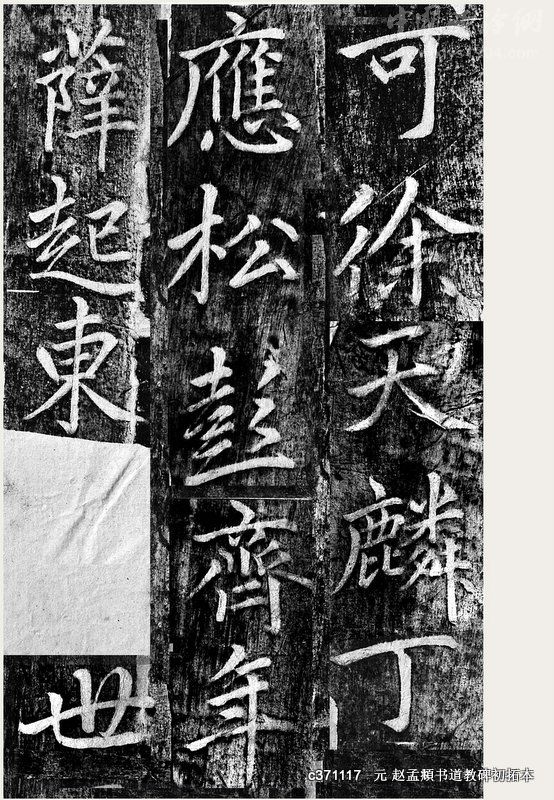 可徐天麟丁
應松彭齊年
薛起東世
c371117 元 赵孟頫书道教碑初拓本